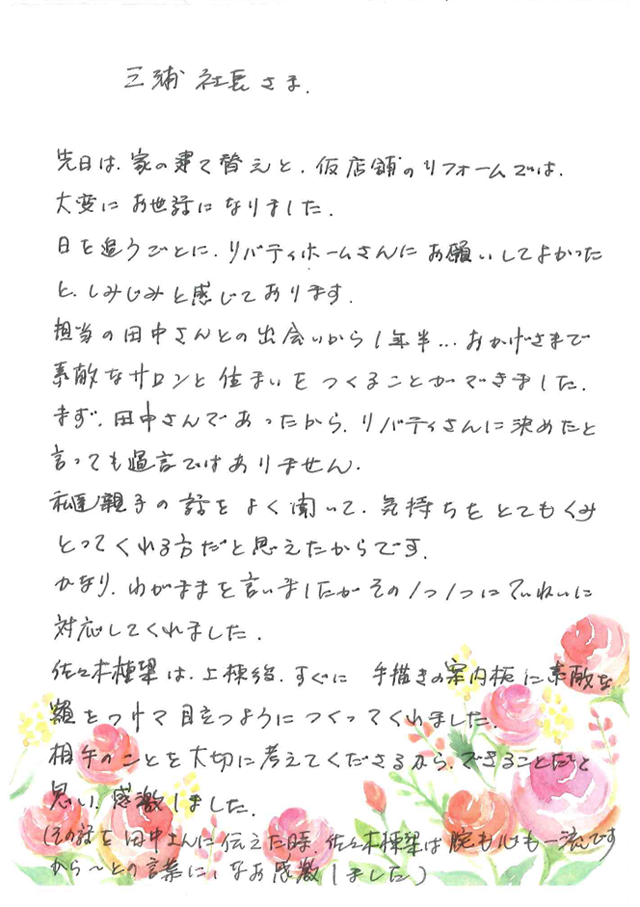 三浦 社長さま.
先日は、家の建て替えと、仮店舗のリフォームでは、
大変にお世話になりました.
日を追うごとに、リバティホームさんにお願いしてよかった
と、しみじみと感じております.
担当の田中さんとの出会いから1年半...おかげさまで
素敵なサロンと住まいをつくることができました.
まず、田中さんであったから、リバティさんに決めたと
言っても過言ではありません.
私達親子の話をよく聞いて、気持ちをとてもくみ
とってくれる方だと思えたからです.
かなり、わがままを言いましたがその1つ1つにていねいに
対応してくれました.
佐々木棟梁は、上棟後、すぐに 手描きの案内板に素敵な
額をつけて目立つようにつくってくれました.
相手のことを大切に考えてくださるから、できることだと
思い、感激しました.
(その話を田中さんに伝えた時、佐々木棟梁は腕も心も一流です
から〜との言葉に、なお感激しました)